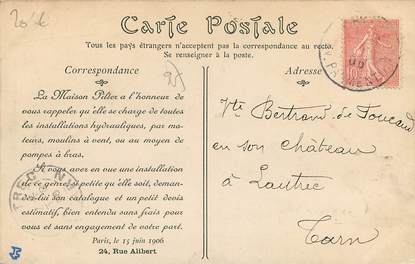 Carte Postale
Tous les pays étrangers n'acceptent pas la correspondance au recto.
Se renseigner à la poste.
Correspondance
Adresse
La Maison Pilter a l'honneur de
vous rappeler qu'elle se charge de toutes
les installations hydrauliques, par mo-
teurs, moulins à vent, ou au moyen de
pompes à bras.
Si vous avez en vue une installation
de ce genre, si petite qu'elle soit, deman-
dez-lui son catalogue et un petit devis
estimatif, bien entendu sans frais pour
vous et sans engagement de votre part.
Paris, le 15 juin 1906
24, Rue Alibert
Vte Bertrand de Foucaud
en son château
à Lautrec
Tarn
10
25